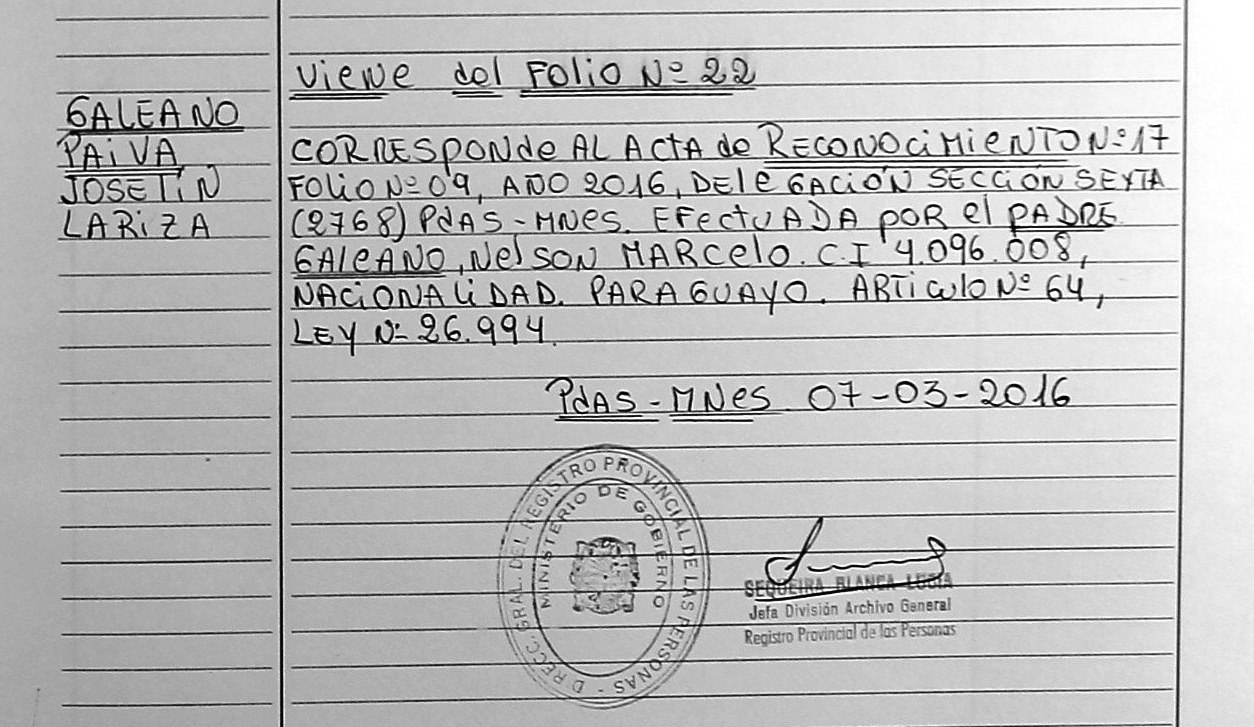 Viene del Folio Nº 22
GALEANO
PAIVA
JOSELIN
LARIZA
CORRESPONDE AL ACTA de RECONOCIMIENTO Nº 17
FOLIO Nº 09, AÑO 2016, DELEGACIÓN SECCIÓN SEXTA
(2768) PdAS-MNES. EFECTUADA POR el PADRE
GALEANO, NELSON MARCELO. C.I 4.096.008,
NACIONALIDAD. PARAGUAYO. ARTICULO Nº 64,
LEY Nº 26.994.
PdAS-MNES 07-03-2016
DIRECC. GRAL. DEL REGISTRO PROVINCIAL DE LAS PERSONAS -
MINISTERIO DE GOBIERNO
SEQUEIRA BLANCA LUCIA
Jefa División Archivo General
Registro Provincial de las Personas